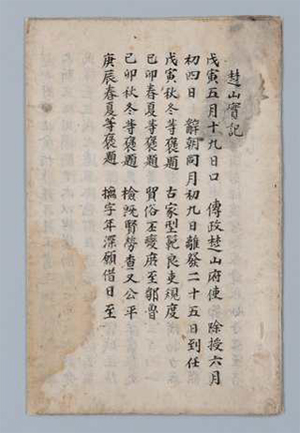 楚山實記
戊寅五月十九日口 傳政楚山府使 除授六月
初四日 辭朝同月初九日離發二十五日到任
戊寅秋冬等褒題 古家型範良吏規度
己卯春夏等褒題 貿俗丕變廣至鄒魯
己卯秋冬等褒題 檢既賢勞查又公平
庚辰春夏等褒題 撫字年深願借日至